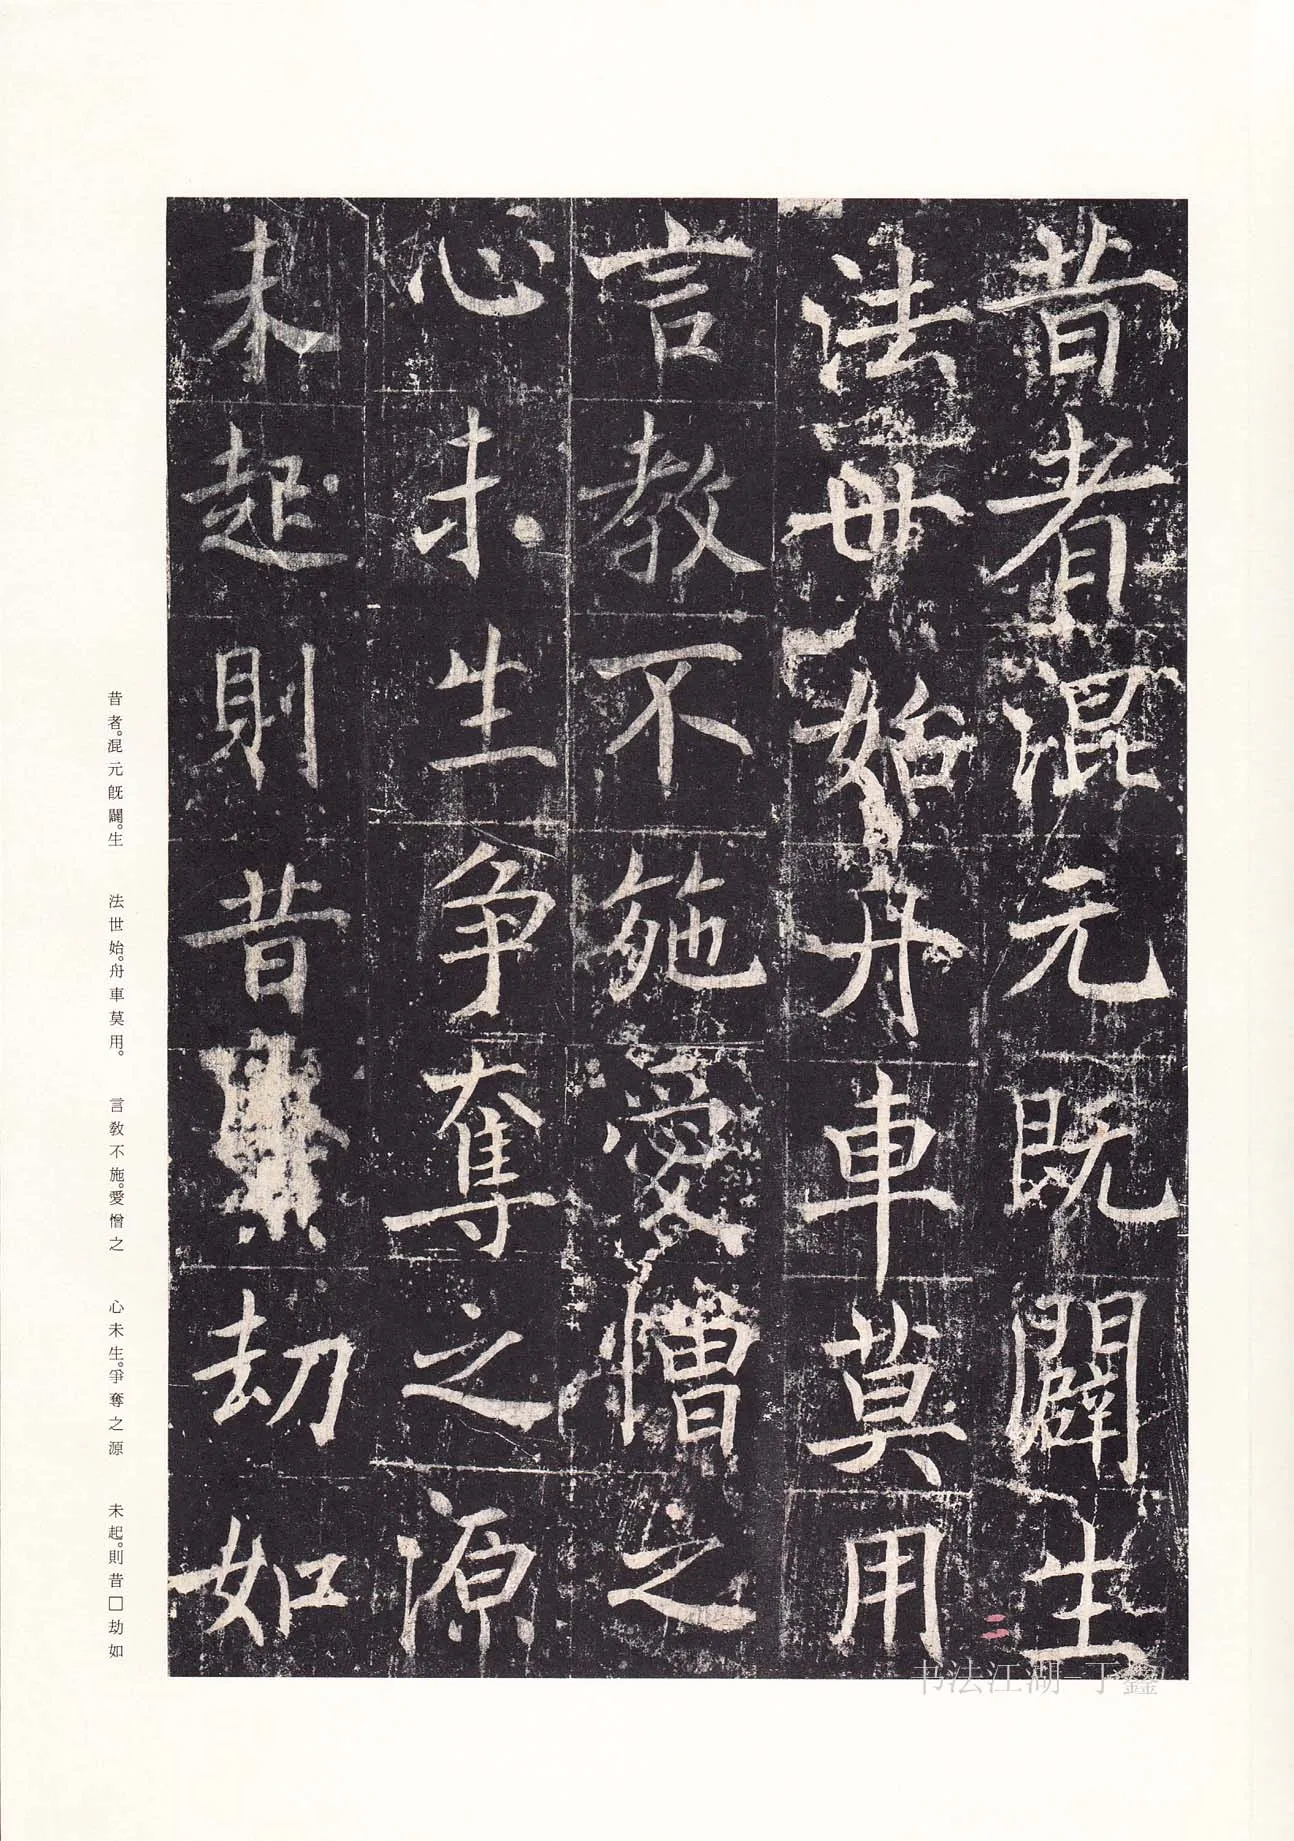 昔者混元既闢生
法世始舟車莫用
言教不施愛憎之
心未生争奪之源
未起則昔劫如
昔者。混元既闢。生
法世始。舟車莫用。
言教不施。愛憎之
心未生。爭奪之源
未起。則昔□劫如
书法江湖-丁鑫